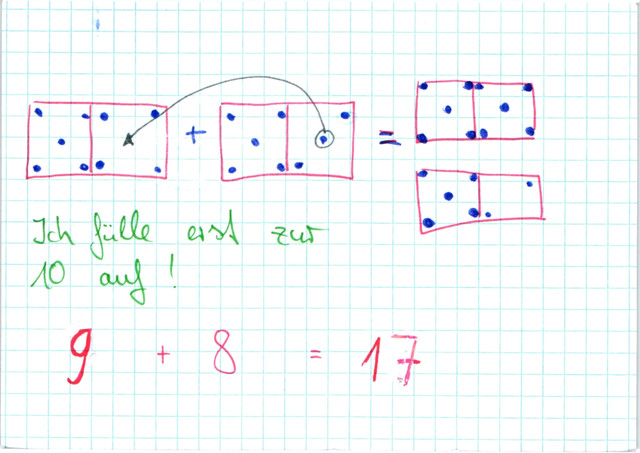 + =
Ich fülle erst zur
10 auf!
9 + 8 = 17